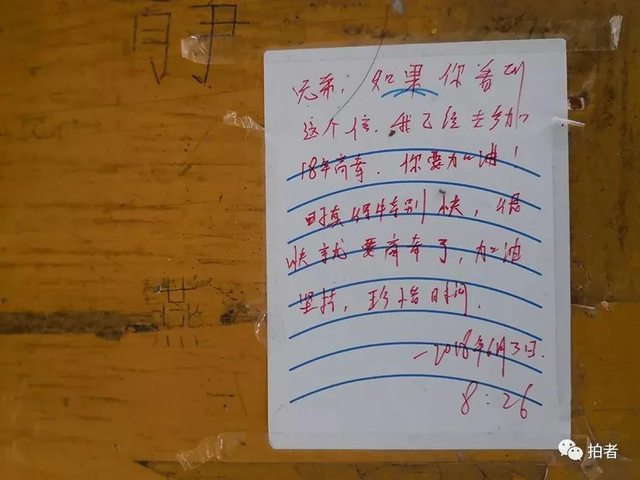 兄弟，如果你看到
这个信.我已经去参加
18年高考.你要加油！
时真得特别快，很
快就要高考了，加油
坚持，珍惜时间.
—2018年6月3日.
8:26
拍者